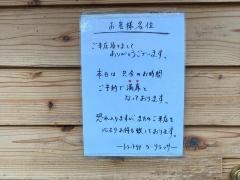 お客様各位
ご来店頂きまして
ありがとうございます。
本日は 只今のお時間
ご予約で満席と
なっております。
恐れ入りますが またのご来店を
心よりお待ち致しております。